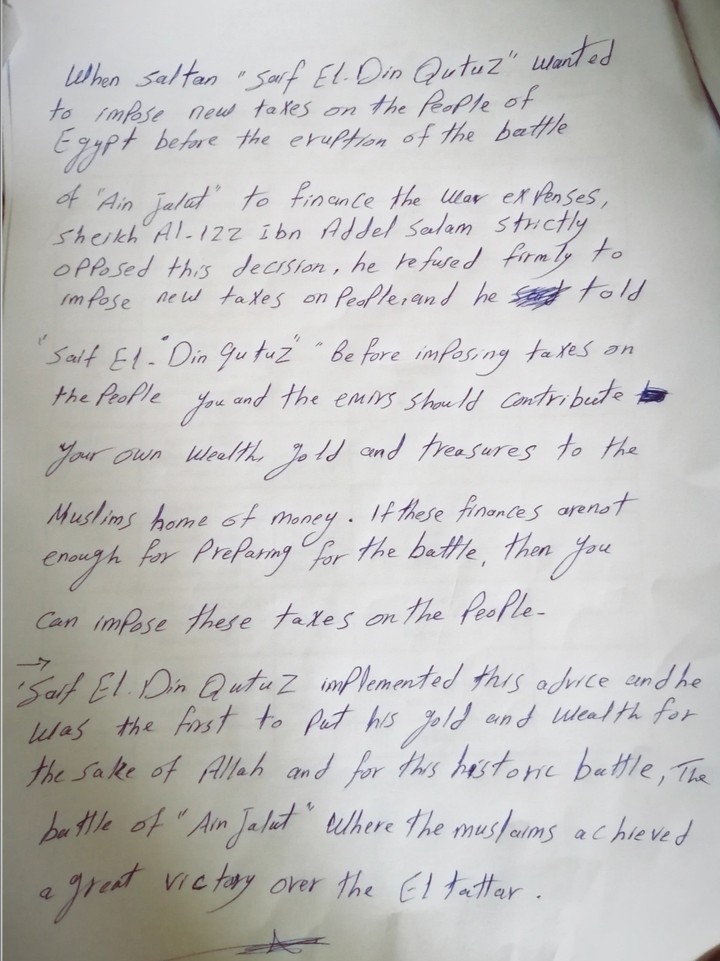 When saltan "Saif El-Din Qutuz" wanted
to impose new taxes on the People of
Egypt before the eruption of the battle
of "Ain jalut" to finance the war expenses,
sheikh Al-izz Ibn Addel Salam strictly
opposed this decision, he refused firmly to
impose new taxes on People, and he told
"Saif El-Din qutuz" "Before imposing taxes on
the People you and the emirs should contribute
your own wealth, gold and treasures to the
Muslims home of money. If these finances are not
enough for Preparing for the battle, then you
can impose these taxes on the People-
→
"Saif El-Din Qutuz implemented this advice and he
was the first to Put his gold and wealth for
the sake of Allah and for this historic battle, The
battle of "Ain jalut" where the muslaims achieved
a great victory over the El tattar.